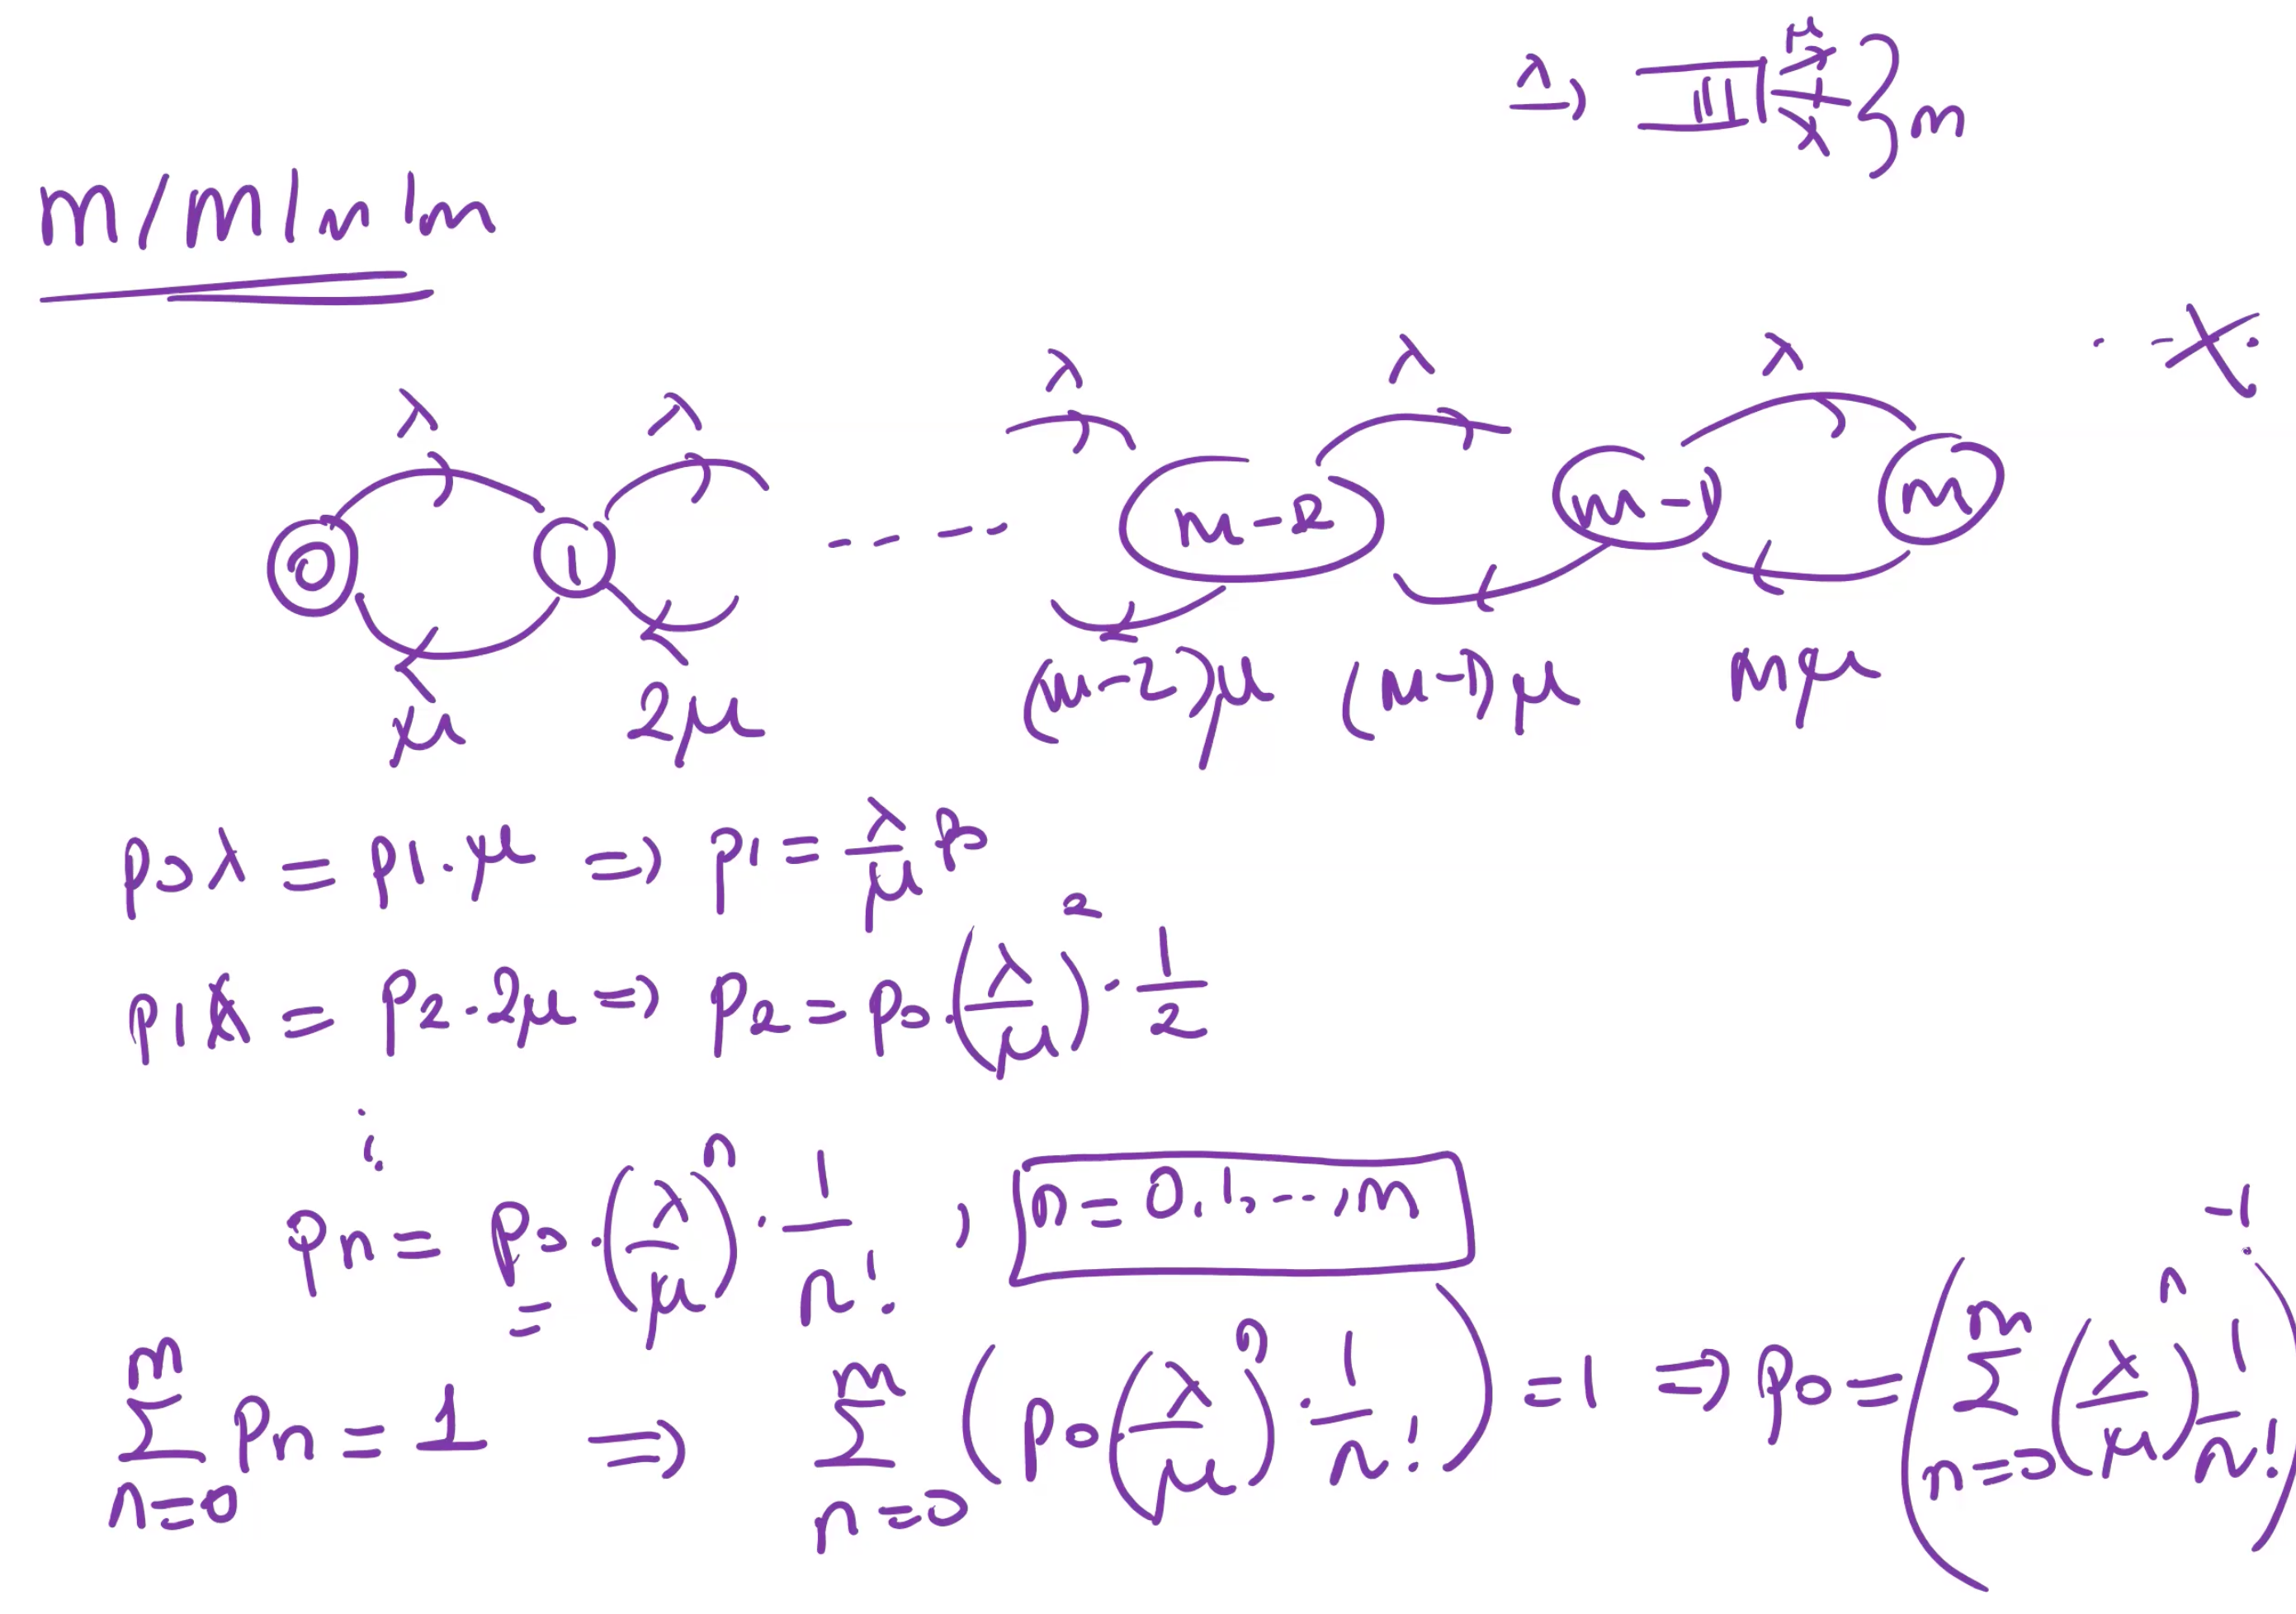 λ → μ } m
M/M/m/m
λ λ λ λ λ
0 1 ---- m-2 m-1 m
μ 2μ (m-2)μ (m-1)μ mμ
p0 λ = p1 · μ ⇒ p1 = λ/μ p0
p1 λ = p2 · 2μ ⇒ p2 = p0 · (λ/μ)^2 · 1/2
⋮
pn = p0 · (λ/μ)^n · 1/n! , n = 0, 1, ---, m
∑_{n=0}^{m} pn = 1 ⇒ ∑_{n=0}^{m} (p0 (λ/μ)^n · 1/n!) = 1 ⇒ p0 = (∑_{n=0}^{m} (λ/μ)^n 1/n!)^{-1}